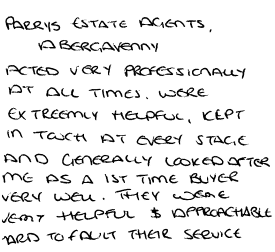 PARRYS ESTATE AGENTS,
ABERGAVENNY
ACTED VERY PROFESSIONALLY
AT ALL TIMES. WERE
EXTREEMLY HELPFUL, KEPT
IN TOUCH AT EVERY STAGE
AND GENERALLY LOOKED AFTER
ME AS A 1ST TIME BUYER
VERY WELL. THEY WERE
VERY HELPFUL & APPROACHABLE
ARD TO FAULT THEIR SERVICE